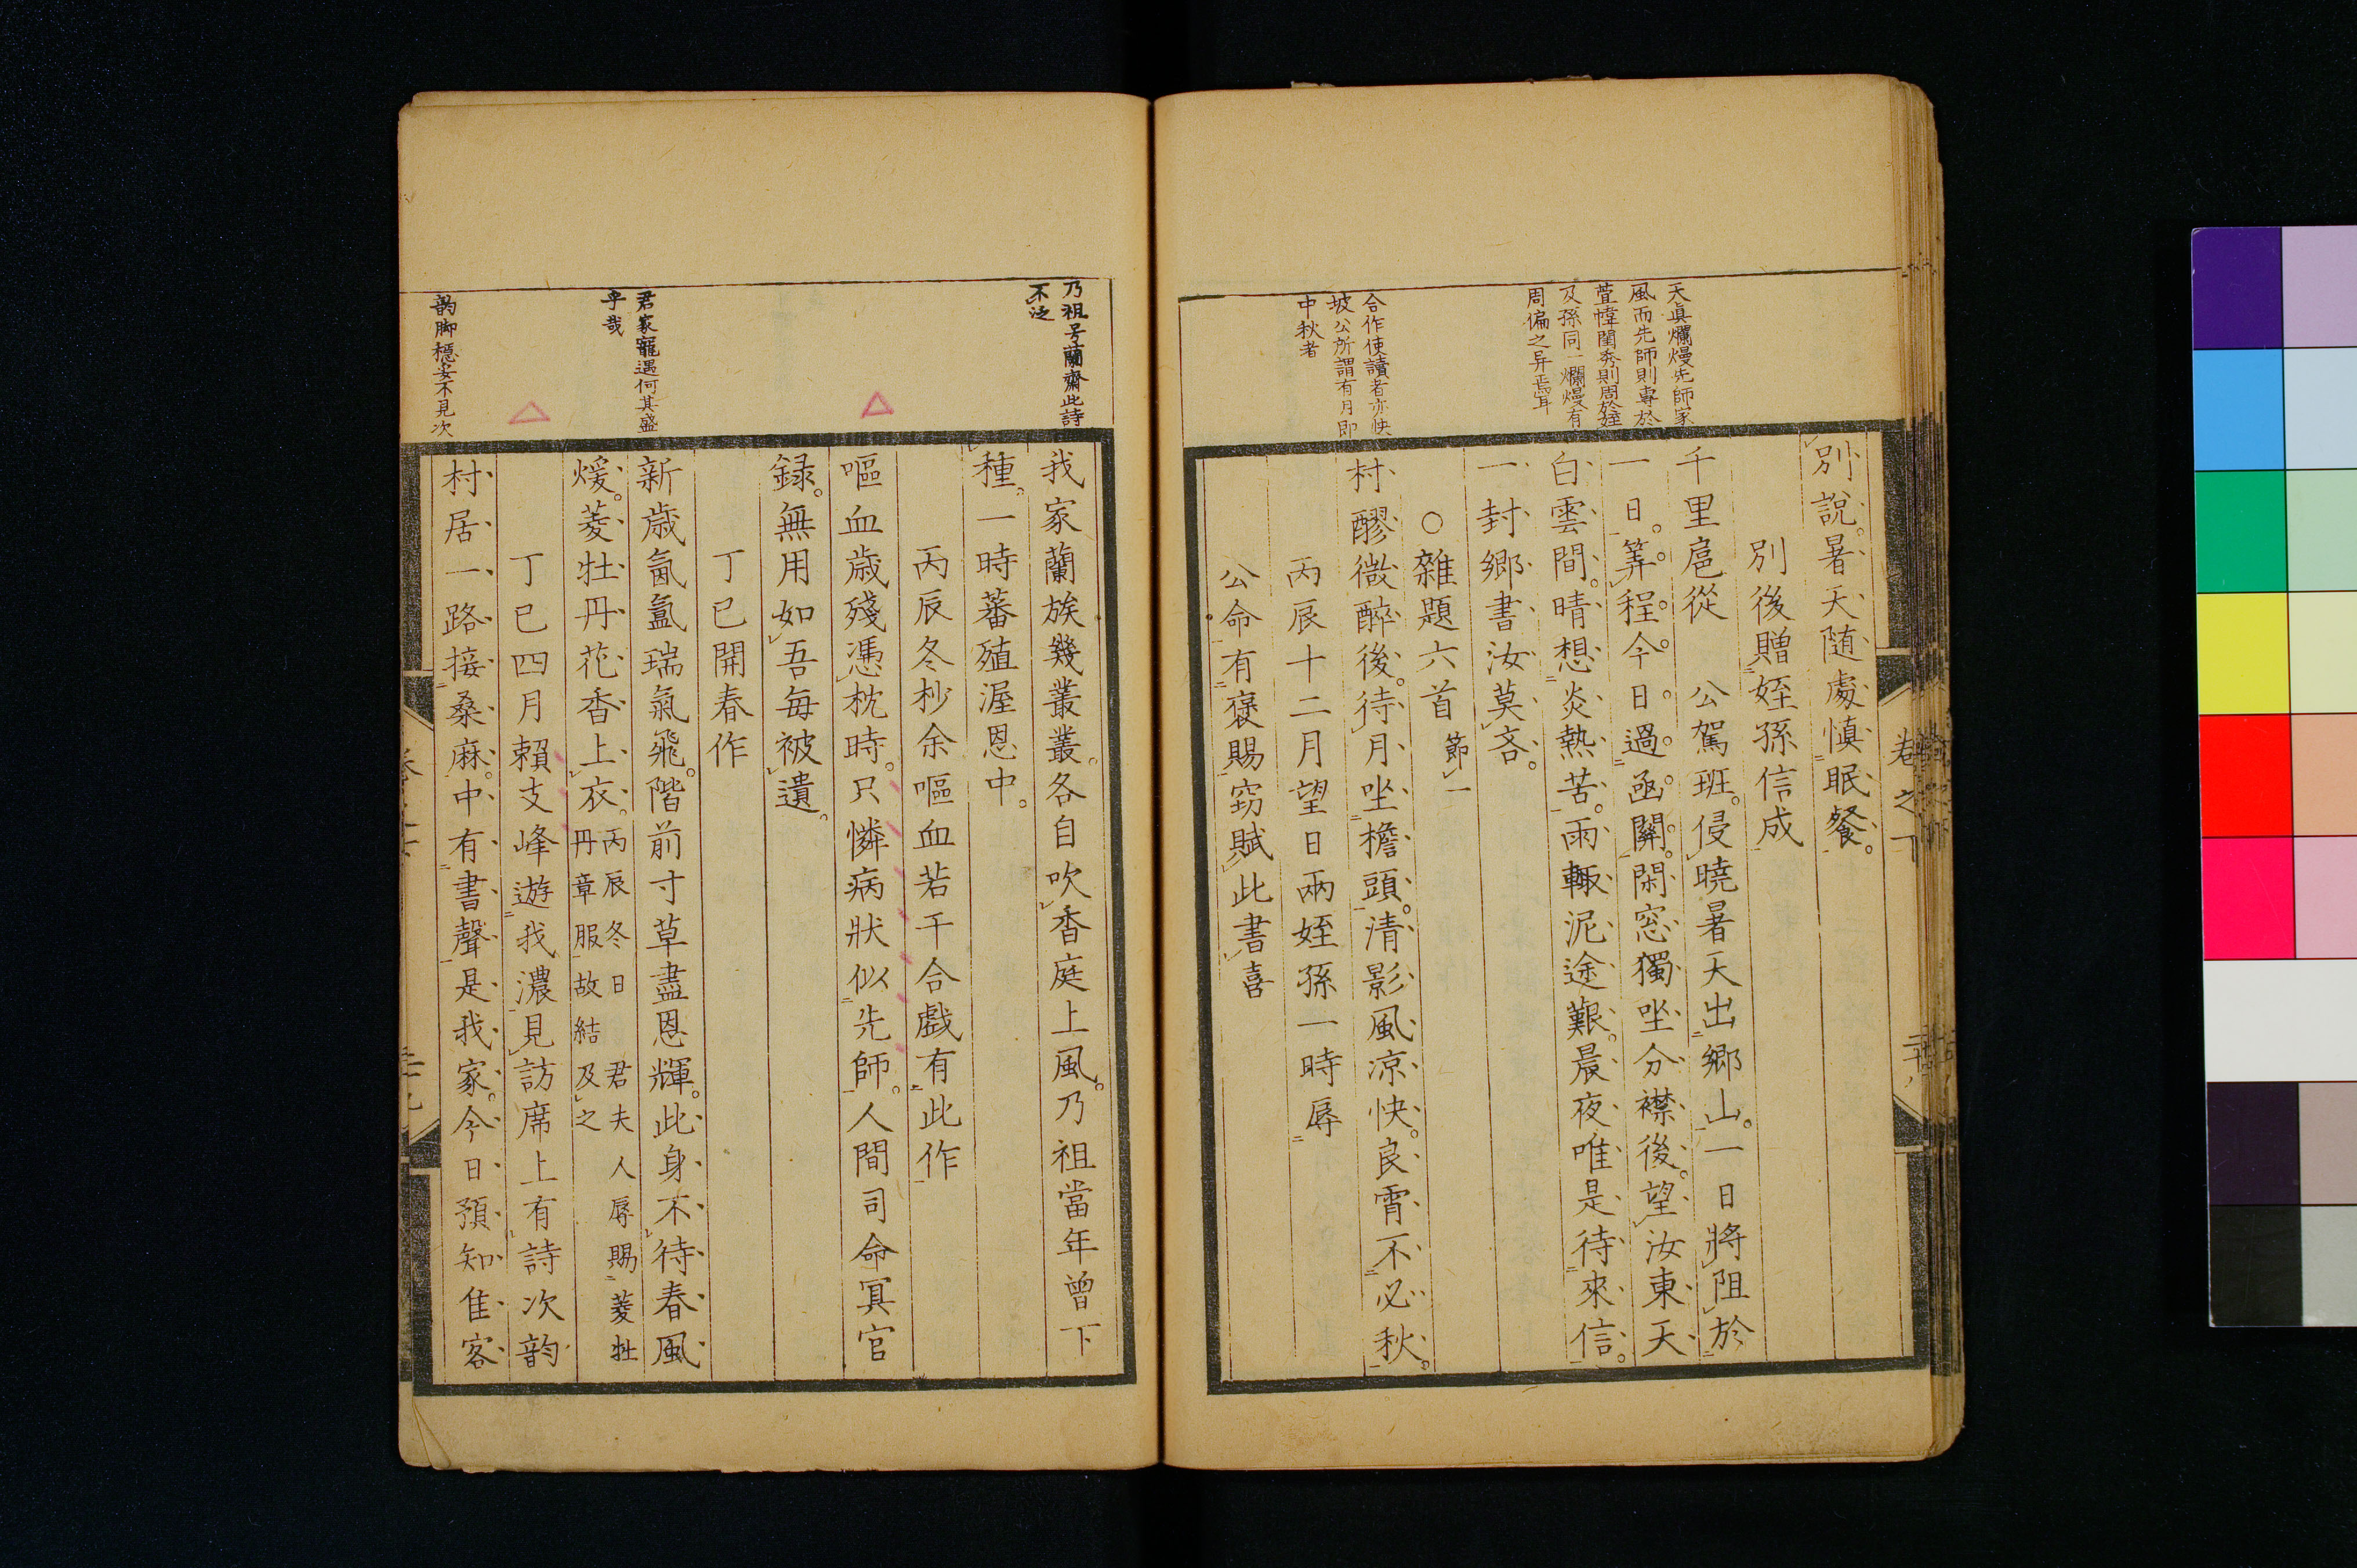 天眞爛熳先師家
風而先師則專於
萱幃閨秀則周於姪
及孫同一爛熳有
周偏之异焉耳
合作使讀者亦快
坡公所謂有月即
中秋者
別說。暑天随處慎眠餐。
別後贈姪孫信成
千里扈從　公駕班。侵曉暑天出鄉山。一日將阻於
一日。筭程。今日過函關。閑窓獨坐分襟後。望汝東天
白雲間。晴想炎熱苦。雨輙泥途艱。晨夜唯是待來信。
一封鄉書汝莫吝。
○雜題六首節一
村醪微醉後。待月坐檐頭。清影風凉快。良霄不必秋。
丙辰十二月望日兩姪孫一時辱
公命有褒賜窈賦此書喜
卷之下
乃祖号蘭齋此詩
不泛
君家寵遇何其盛
乎哉
韵脚穩妥不見次
我家蘭族幾叢叢。各自吹香庭上風。乃祖當年曾下
種。一時蕃殖渥恩中。
丙辰冬杪余嘔血若干合戲有此作
嘔血歳殘憑枕時。只憐病狀似先師。人間司命冥官
録。無用如吾每被遺。
丁巳開春作
新歳氤氳瑞氣飛。階前寸草盡恩輝。此身不待春風
煖。菱牡丹花香上衣。丙辰冬日　君夫人辱賜菱牡
丹章服故結及之
丁巳四月賴支峰遊我濃見訪席上有詩次韵
村居一路接桑麻。中有書聲是我家。今日預知佳客